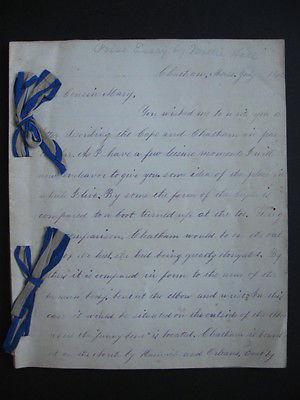 Prize Essay by Nellie
Chatham, Mass.
Cousin Mary.
You wished me to write you a
describing the Cape and Chatham in par
As I have a few leisure moments I will
now endeavor to give you some idea of the place in
which I live. By some the form of the Cape is
compared to a boot turned up at the toe. Using
comparison, Chatham would be on the out
of the heel, the heel being greatly elongated. By
others it is compared in form to the arm of the
human body, bent at the elbow and wrist. In this
case it would be situated on the outside of the elbow
where the "funny bone" is located. Chatham is bound
ed on the North by Harwich and Orleans, East by